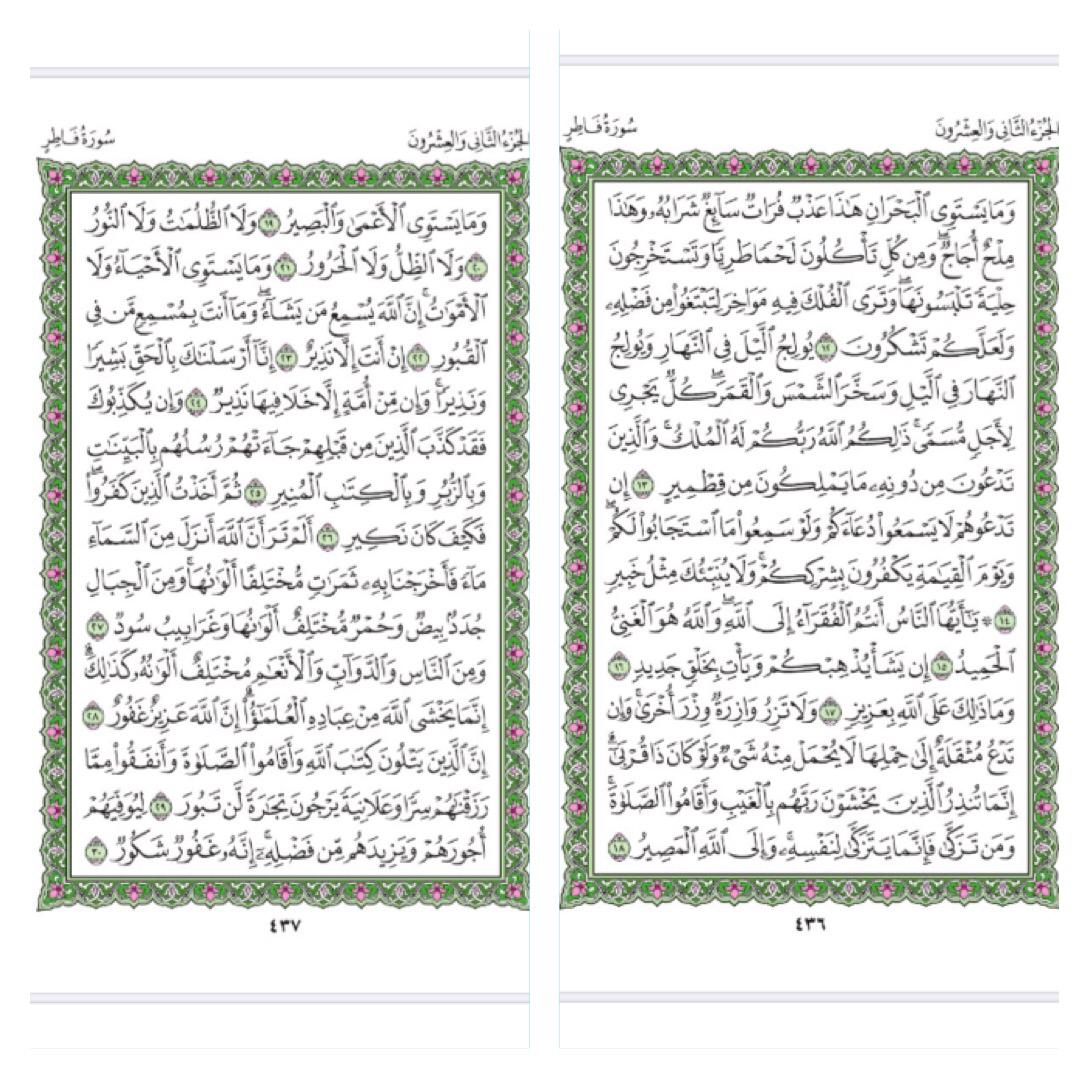 الجُزْءُ الثَّانِى وَالعِشْرُونَ
سُورَةُ فَاطِرٍ
وَمَا يَسْتَوِى ٱلْبَحْرَانِ هَٰذَا عَذْبٌ فُرَاتٌ سَآئِغٌ شَرَابُهُۥ وَهَٰذَا
مِلْحٌ أُجَاجٌ ۖ وَمِن كُلٍّ تَأْكُلُونَ لَحْمًا طَرِيًّا وَتَسْتَخْرِجُونَ
حِلْيَةً تَلْبَسُونَهَا ۖ وَتَرَى ٱلْفُلْكَ فِيهِ مَوَاخِرَ لِتَبْتَغُوا۟ مِن فَضْلِهِۦ
وَلَعَلَّكُمْ تَشْكُرُونَ ١٢ يُولِجُ ٱلَّيْلَ فِى ٱلنَّهَارِ وَيُولِجُ
ٱلنَّهَارَ فِى ٱلَّيْلِ وَسَخَّرَ ٱلشَّمْسَ وَٱلْقَمَرَ ۖ كُلٌّ يَجْرِى
لِأَجَلٍ مُّسَمًّى ۚ ذَٰلِكُمُ ٱللَّهُ رَبُّكُمْ لَهُ ٱلْمُلْكُ ۚ وَٱلَّذِينَ
تَدْعُونَ مِن دُونِهِۦ مَا يَمْلِكُونَ مِن قِطْمِيرٍ ١٣ إِن
تَدْعُوهُمْ لَا يَسْمَعُوا۟ دُعَآءَكُمْ وَلَوْ سَمِعُوا۟ مَا ٱسْتَجَابُوا۟ لَكُمْ ۖ
وَيَوْمَ ٱلْقِيَٰمَةِ يَكْفُرُونَ بِشِرْكِكُمْ ۚ وَلَا يُنَبِّئُكَ مِثْلُ خَبِيرٍ
١٤ ۞ يَٰٓأَيُّهَا ٱلنَّاسُ أَنتُمُ ٱلْفُقَرَآءُ إِلَى ٱللَّهِ ۖ وَٱللَّهُ هُوَ ٱلْغَنِىُّ
ٱلْحَمِيدُ ١٥ إِن يَشَأْ يُذْهِبْكُمْ وَيَأْتِ بِخَلْقٍ جَدِيدٍ ١٦
وَمَا ذَٰلِكَ عَلَى ٱللَّهِ بِعَزِيزٍ ١٧ وَلَا تَزِرُ وَازِرَةٌ وِزْرَ أُخْرَىٰ ۚ وَإِن
تَدْعُ مُثْقَلَةٌ إِلَىٰ حِمْلِهَا لَا يُحْمَلْ مِنْهُ شَىْءٌ وَلَوْ كَانَ ذَا قُرْبَىٰٓ ۗ
إِنَّمَا تُنذِرُ ٱلَّذِينَ يَخْشَوْنَ رَبَّهُم بِٱلْغَيْبِ وَأَقَامُوا۟ ٱلصَّلَوٰةَ ۚ
وَمَن تَزَكَّىٰ فَإِنَّمَا يَتَزَكَّىٰ لِنَفْسِهِۦ ۚ وَإِلَى ٱللَّهِ ٱلْمَصِيرُ ١٨
٤٣٦
الجُزْءُ الثَّانِى وَالعِشْرُونَ
سُورَةُ فَاطِرٍ
وَمَا يَسْتَوِى ٱلْأَعْمَىٰ وَٱلْبَصِيرُ ١٩ وَلَا ٱلظُّلُمَٰتُ وَلَا ٱلنُّورُ
٢٠ وَلَا ٱلظِّلُّ وَلَا ٱلْحَرُورُ ٢١ وَمَا يَسْتَوِى ٱلْأَحْيَآءُ وَلَا
ٱلْأَمْوَٰتُ ۚ إِنَّ ٱللَّهَ يُسْمِعُ مَن يَشَآءُ ۖ وَمَآ أَنتَ بِمُسْمِعٍ مَّن فِى
ٱلْقُبُورِ ٢٢ إِنْ أَنتَ إِلَّا نَذِيرٌ ٢٣ إِنَّآ أَرْسَلْنَٰكَ بِٱلْحَقِّ بَشِيرًا
وَنَذِيرًا ۚ وَإِن مِّنْ أُمَّةٍ إِلَّا خَلَا فِيهَا نَذِيرٌ ٢٤ وَإِن يُكَذِّبُوكَ
فَقَدْ كَذَّبَ ٱلَّذِينَ مِن قَبْلِهِمْ جَآءَتْهُمْ رُسُلُهُم بِٱلْبَيِّنَٰتِ
وَبِٱلزُّبُرِ وَبِٱلْكِتَٰبِ ٱلْمُنِيرِ ٢٥ ثُمَّ أَخَذْتُ ٱلَّذِينَ كَفَرُوا۟ ۖ
فَكَيْفَ كَانَ نَكِيرِ ٢٦ أَلَمْ تَرَ أَنَّ ٱللَّهَ أَنزَلَ مِنَ ٱلسَّمَآءِ
مَآءً فَأَخْرَجْنَا بِهِۦ ثَمَرَٰتٍ مُّخْتَلِفًا أَلْوَٰنُهَا ۚ وَمِنَ ٱلْجِبَالِ
جُدَدٌۢ بِيضٌ وَحُمْرٌ مُّخْتَلِفٌ أَلْوَٰنُهَا وَغَرَابِيبُ سُودٌ ٢٧
وَمِنَ ٱلنَّاسِ وَٱلدَّوَآبِّ وَٱلْأَنْعَٰمِ مُخْتَلِفٌ أَلْوَٰنُهُۥ كَذَٰلِكَ ۗ
إِنَّمَا يَخْشَى ٱللَّهَ مِنْ عِبَادِهِ ٱلْعُلَمَٰٓؤُا۟ ۗ إِنَّ ٱللَّهَ عَزِيزٌ غَفُورٌ ٢٨
إِنَّ ٱلَّذِينَ يَتْلُونَ كِتَٰبَ ٱللَّهِ وَأَقَامُوا۟ ٱلصَّلَوٰةَ وَأَنفَقُوا۟ مِمَّا
رَزَقْنَٰهُمْ سِرًّا وَعَلَانِيَةً يَرْجُونَ تِجَٰرَةً لَّن تَبُورَ ٢٩ لِيُوَفِّيَهُمْ
أُجُورَهُمْ وَيَزِيدَهُم مِّن فَضْلِهِۦٓ ۚ إِنَّهُۥ غَفُورٌ شَكُورٌ ٣٠
٤٣٧